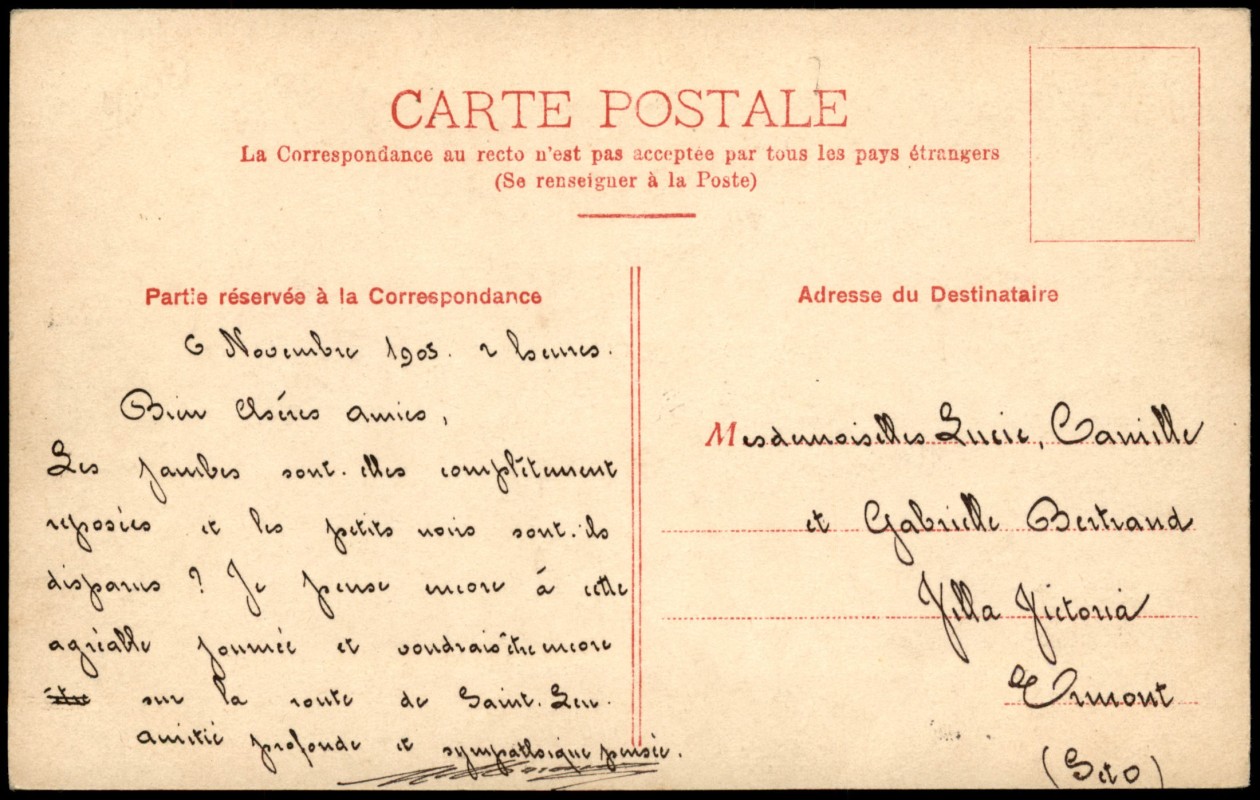 CARTE POSTALE
La Correspondance au recto n'est pas acceptée par tous les pays étrangers
(Se renseigner à la Poste)
Partie réservée à la Correspondance
6 Novembre 1905. 2 heures.
Bien Chéres amies,
Les jambes sont-elles complètement
reposées et les petits sont-ils
disparus ? Je pense encore à cette
agréable journée et voudrais être encore
être sur la route de Saint-Leu.
amitié profonde et sympathique pensée.
Adresse du Destinataire
Mesdemoiselles Lucie, Camille
et Gabrielle Bertrand
Villa Victoria
Ermont
(S et O)